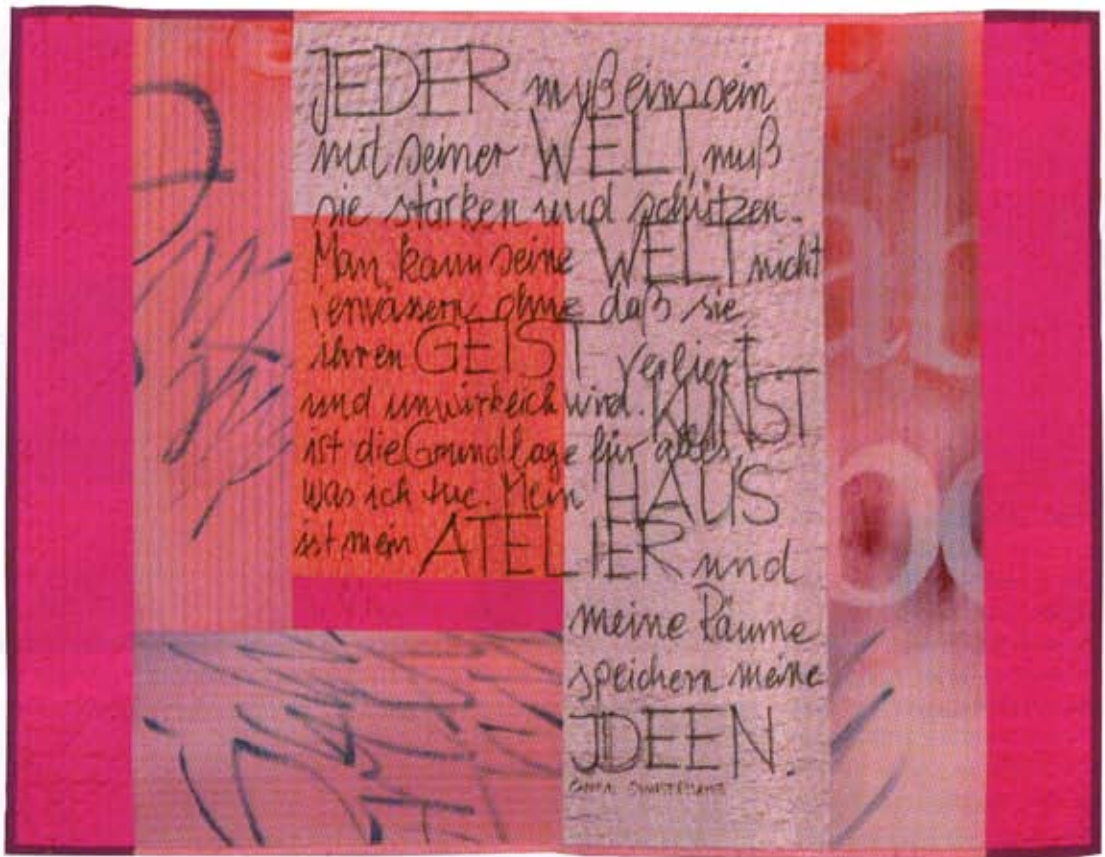 JEDER muß eins sein
mit seiner WELT, muß
sie stärken und schützen.
Man kann seine WELT nicht
ohne daß sie
ihren GEIST verliert
und unwirklich wird. KUNST
ist die Grundlage für alles,
was ich tue. Mein HAUS
ist mein ATELIER und
meine Räume
speichern meine
JDEEN.